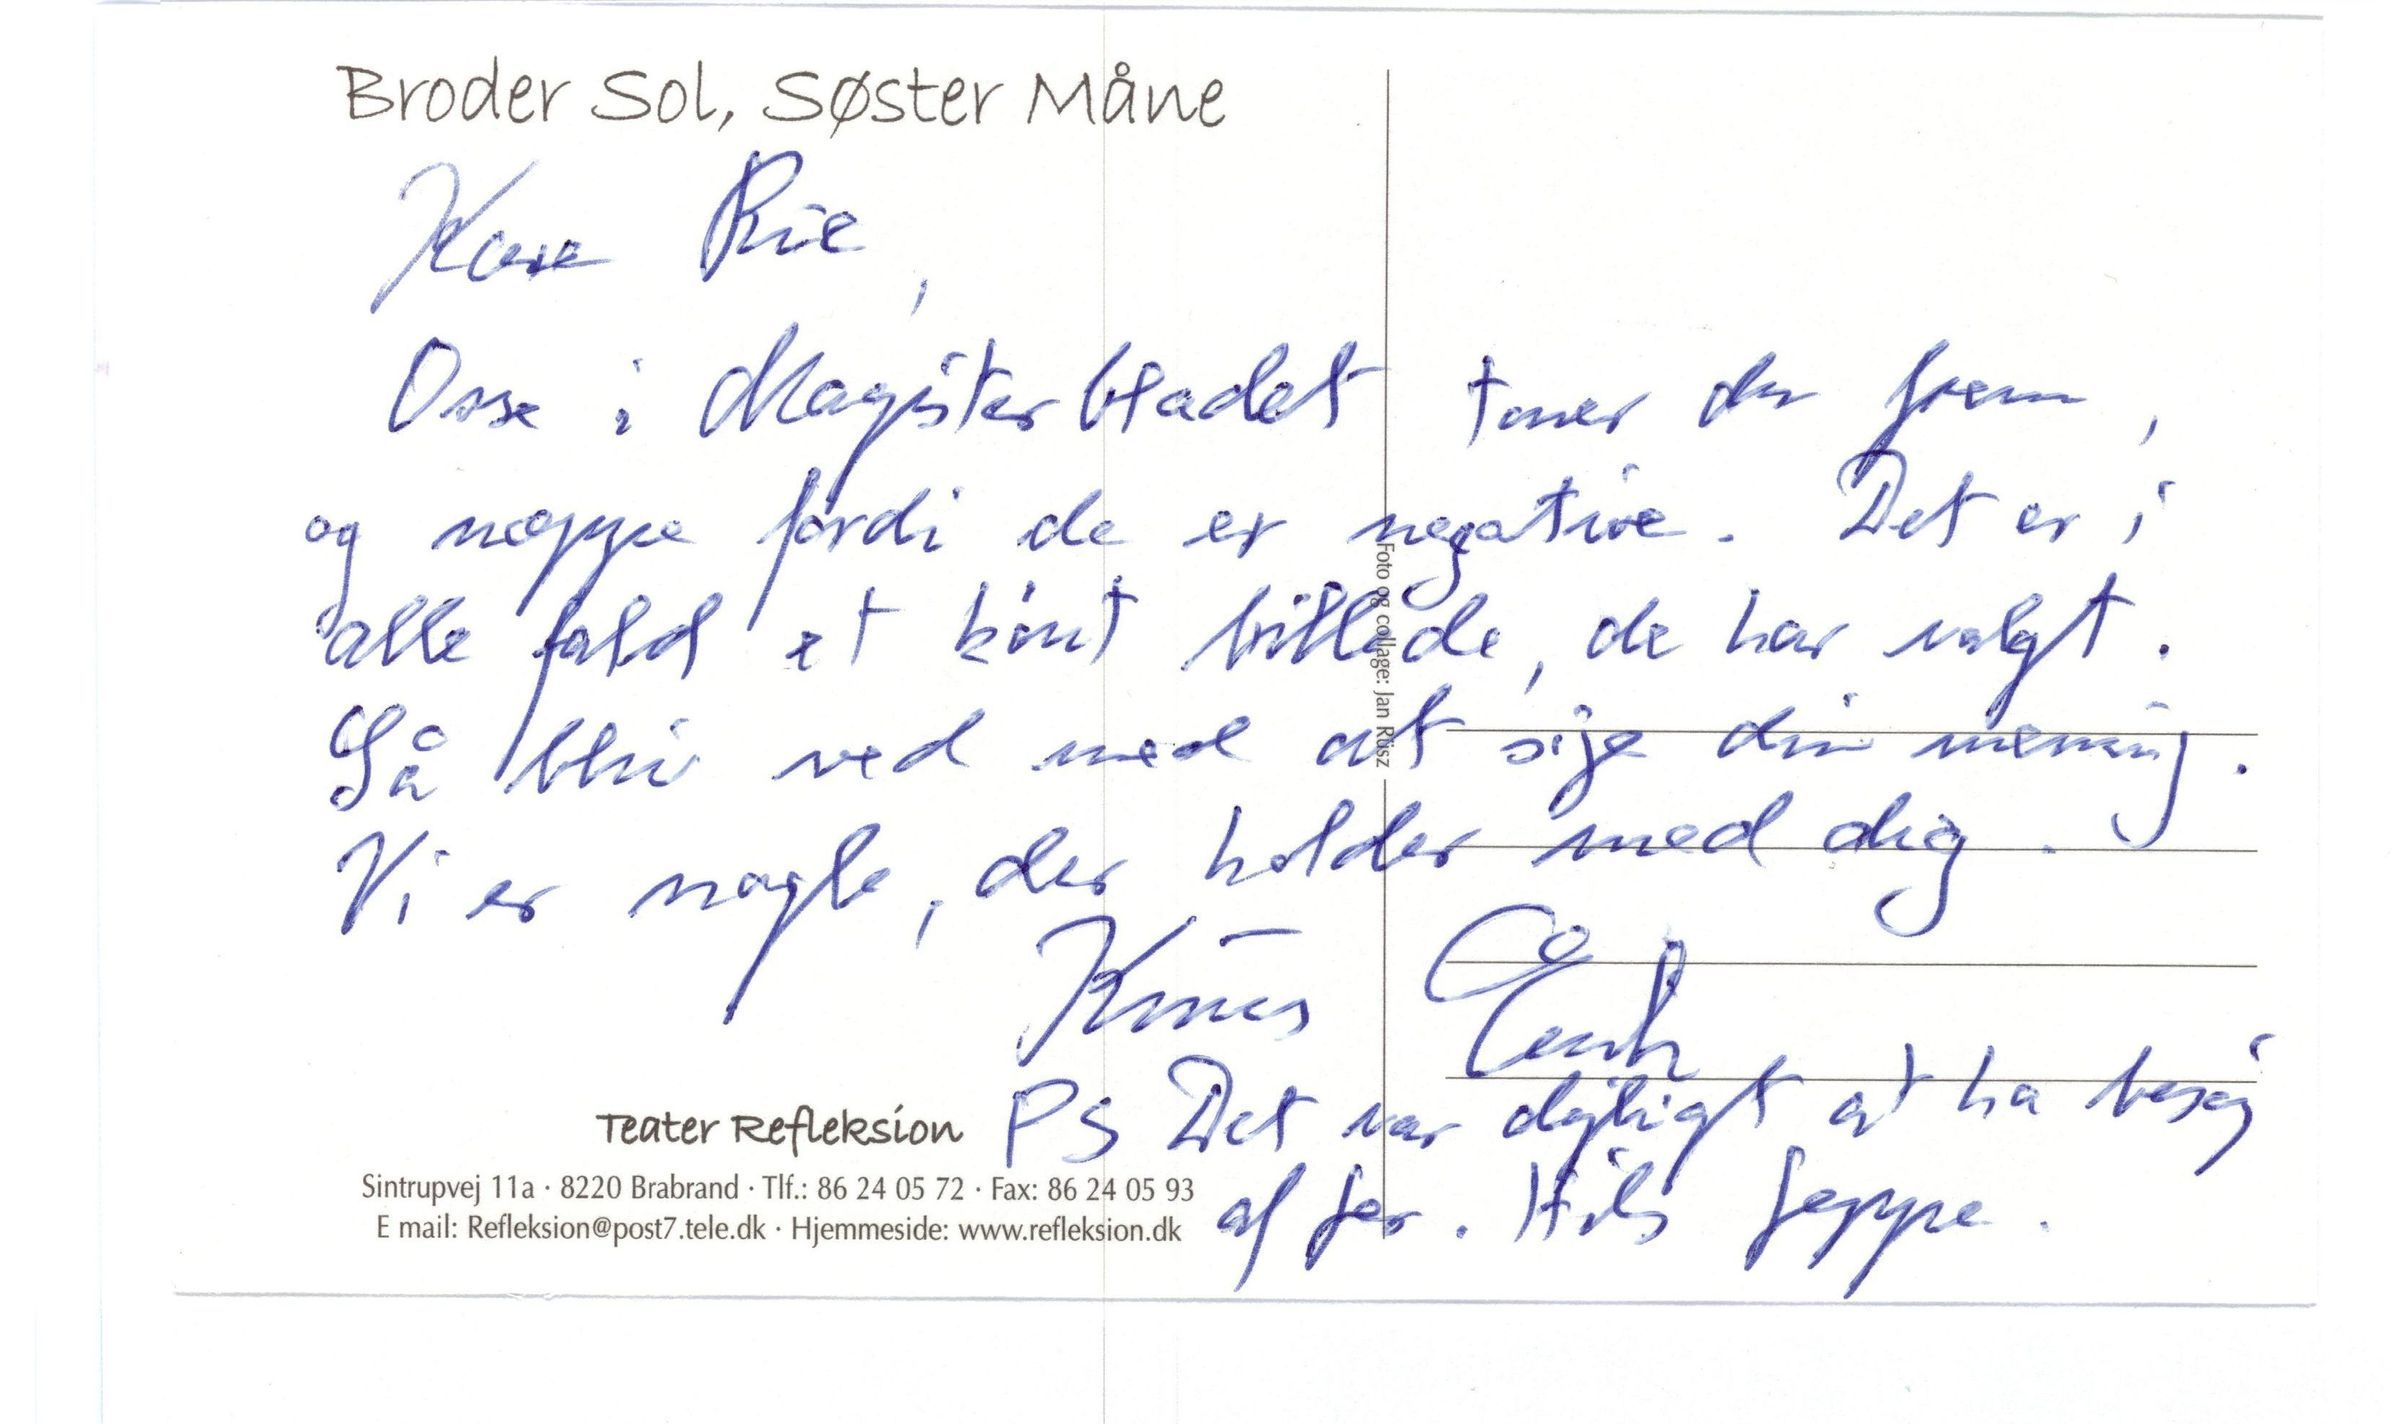 Broder Sol, Søster Måne
Kære Rie,
Osse i Magisterbladet toner du frem,
og næppe fordi de er negative. Det er i
alle fald et kønt billede, de har valgt.
Så bliv ved med at sige din mening.
Vi er nogle, der holder med dig.
Knus
PS Det var dejligt at ha besøg
af jer. Hils Jeppe.
Teater Refleksion
Sintrupvej 11a · 8220 Brabrand · Tlf.: 86 24 05 72 · Fax: 86 24 05 93
E mail: Refleksion@post7.tele.dk · Hjemmeside: www.refleksion.dk
Foto og collage: Jan Rüsz